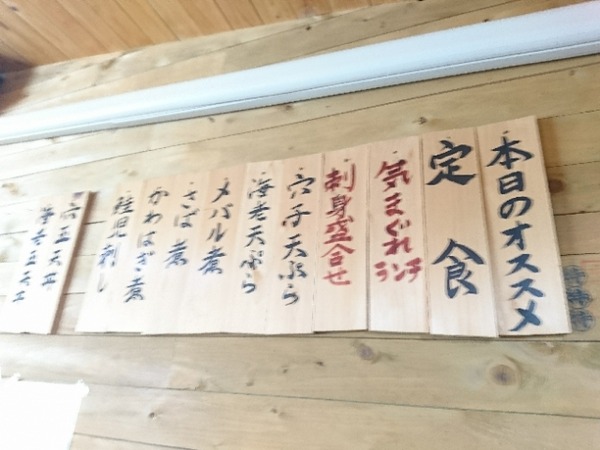 本日のオススメ
定食
気まぐれランチ
刺身盛合せ
穴子天ぷら
海老天ぷら
メバル煮
さば煮
かわはぎ煮
桂児刺し